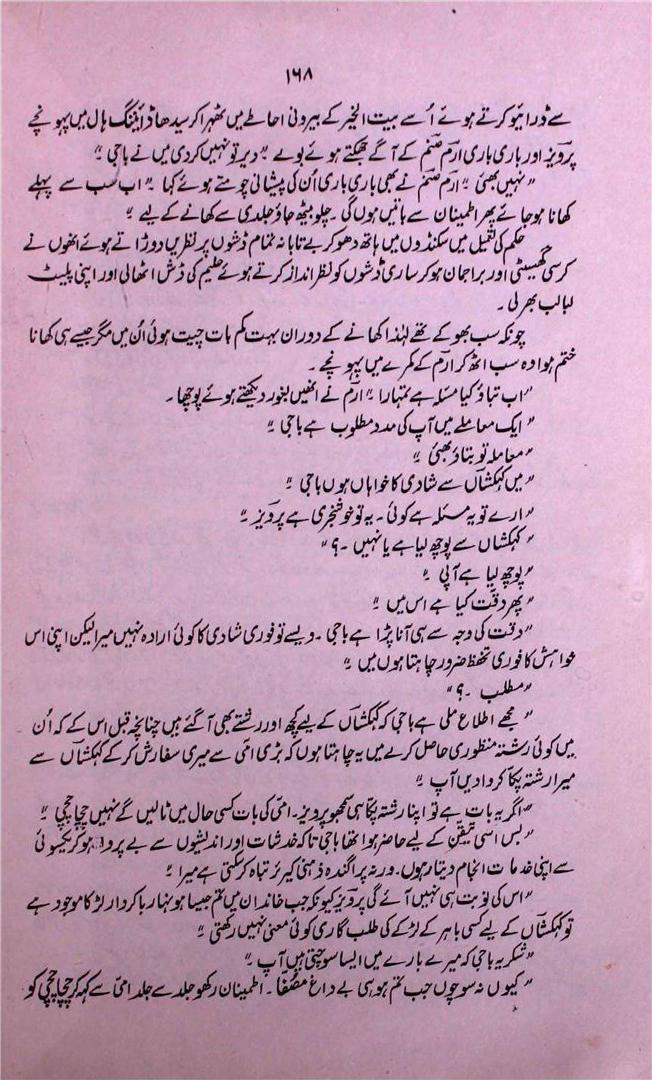 ۱۶۸
سے ڈرائیو کرتے ہوئے اُسے بیت الخیر کے بیرونی احاطے میں ٹھہرا کر سیدھا ڈائننگ ہال میں پہونچے
پرویز اور باری باری ارم صنم کے آگے جھکتے ہوئے بولے ۔" دیر تو نہیں کر دی میں نے باجی ۔"
" نہیں بھئی ۔" ارم صنم نے بھی باری باری اُن کی پیشانی چومتے ہوئے کہا ۔" اب سب سے پہلے
کھانا ہو جائے پھر اطمینان سے باتیں ہوں گی ۔ چلو بیٹھ جاؤ جلدی سے کھانے کے لیے ۔"
حکم کی تعمیل میں سکنڈوں میں ہاتھ دھو کر بے تابانہ تمام ڈشوں پر نظریں دوڑاتے ہوئے انھوں نے
کرسی گھسیٹی اور براجمان ہو کر ساری ڈشوں کو نظر انداز کرتے ہوئے حلیم کی ڈش اٹھالی اور اپنی پلیٹ
لبالب بھر لی ۔
چونکہ سب بھوکے تھے لہٰذا کھانے کے دوران بہت کم بات چیت ہوئی اُن میں مگر جیسے ہی کھانا
ختم ہوا وہ سب اٹھ کر ارم کے کمرے میں پہونچے ۔
" اب بتاؤ کیا مسئلہ ہے تمہارا ۔" ارم نے انھیں بغور دیکھتے ہوئے پوچھا ۔
" ایک معاملے میں آپ کی مدد مطلوب ہے باجی ۔"
" معاملہ تو بتاؤ بھئی ۔"
" میں کہکشاں سے شادی کا خواہاں ہوں باجی ۔"
" ارے تو یہ مسئلہ ہے کوئی ۔ یہ تو خوشخبری ہے پرویز ۔"
" کہکشاں سے پوچھ لیا ہے یا نہیں ۔؟ "
" پوچھ لیا ہے آپی ۔"
" پھر دقت کیا ہے اس میں ۔"
" دقت کی وجہ سے ہی آنا پڑا ہے باجی ۔ ویسے تو فوری شادی کا کوئی ارادہ نہیں میرا لیکن اپنی اس
خواہش کا فوری تحفظ ضرور چاہتا ہوں میں ۔"
" مطلب ۔؟ "
" مجھے اطلاع ملی ہے باجی کہ کہکشاں کے لیے کچھ اور رشتے بھی آ گئے ہیں چنانچہ قبل اس کے کہ اُن
میں کوئی رشتہ منظوری حاصل کرے میں یہ چاہتا ہوں کہ بڑی امّی سے میری سفارش کر کے کہکشاں سے
میرا رشتہ پکا کروا دیں آپ ۔"
" اگر یہ بات ہے تو اپنا رشتہ پکا ہی سمجھو پرویز ۔ امّی کی بات کسی حال میں ٹالیں گے نہیں چچا چچی ۔"
" بس اسی تیقن کے لیے حاضر ہوا تھا باجی تاکہ خدشات اور اندیشوں سے بے پروا ہو کر یکسوئی
سے اپنی خدمات انجام دیتا رہوں ۔ ورنہ پراگندہ ذہنی کیریر تباہ کر سکتی ہے میرا ۔"
" اس کی نوبت ہی نہیں آئے گی پرویز کیونکہ جب خاندان میں تم جیسا ہونہار با کردار لڑکا موجود ہے
تو کہکشاں کے لیے کسی باہر کے لڑکے کی طلب گاری کوئی معنی نہیں رکھتی ۔"
" شکریہ باجی کہ میرے بارے میں ایسا سوچتی ہیں آپ ۔"
" کیوں نہ سوچوں جب تم ہو ہی بے داغ مصفّا ۔ اطمینان رکھو جلد سے جلد امّی سے کہہ کر چچا چچی کو